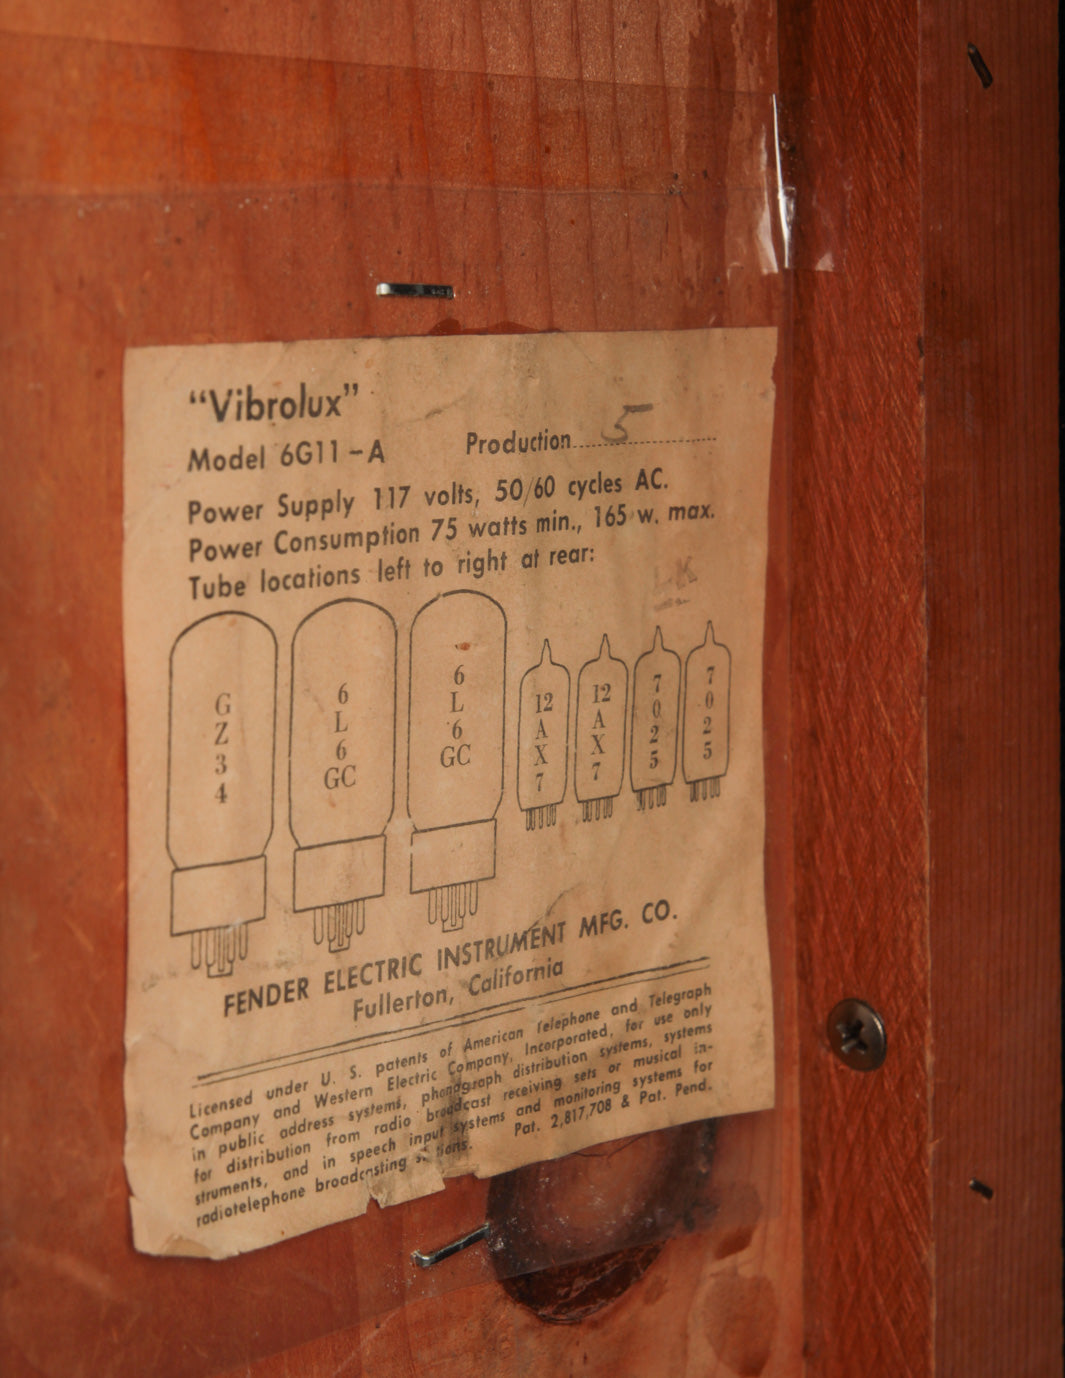 “Vibrolux”
Model 6G11-A Production 5
Power Supply 117 volts, 50/60 cycles AC.
Power Consumption 75 watts min., 165 w. max.
Tube locations left to right at rear:
LK
GZ34 6L6GC 6L6GC 12AX7 12AX7 7025 7025
FENDER ELECTRIC INSTRUMENT MFG. CO.
Fullerton, California
Licensed under U. S. patents of American Telephone and Telegraph
Company and Western Electric Company, Incorporated, for use only
in public address systems, phonograph distribution systems, systems
for distribution from radio broadcast receiving sets or musical in-
struments, and in speech input systems and monitoring systems for
radiotelephone broadcasting stations. Pat. 2,817,708 & Pat. Pend.